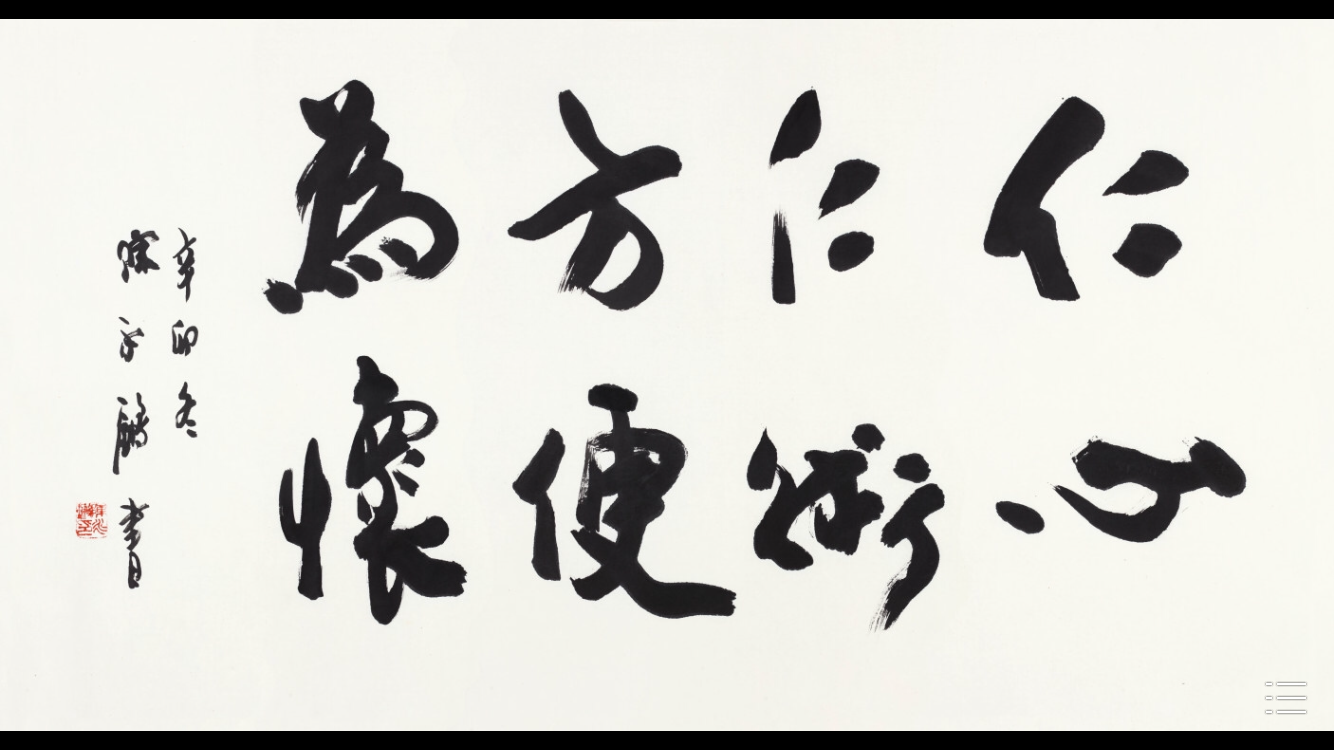 仁心
仁術
方便
為懷
辛卯冬
陳子鏞書